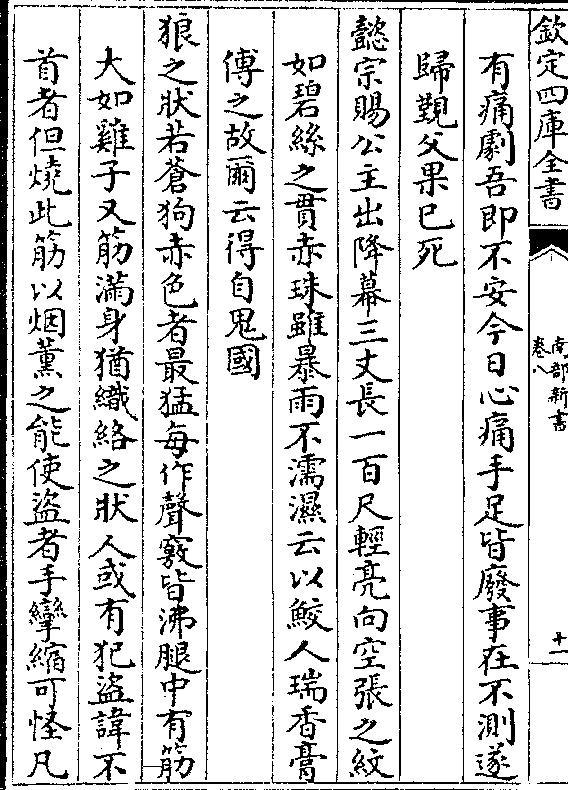 欽定四庫全書
南部新書
卷八
十一
有痛劇吾即不安今日心痛手足皆廢事在不測遂
歸觀父果已死
懿宗賜公主出降幕三丈長一百尺輕亮向空張之紋
如碧絲之貫赤珠雖暴雨不濡濕云以鮫人瑞香膏
傅之故爾云得自鬼國
狼之狀若蒼狗赤色者最猛每作聲竅皆沸腿中有筋
大如雞子又筋滿身猶織絡之狀人或有犯盜諱不
首者但燒此筋以烟薰之能使盜者手攣縮可怪凡